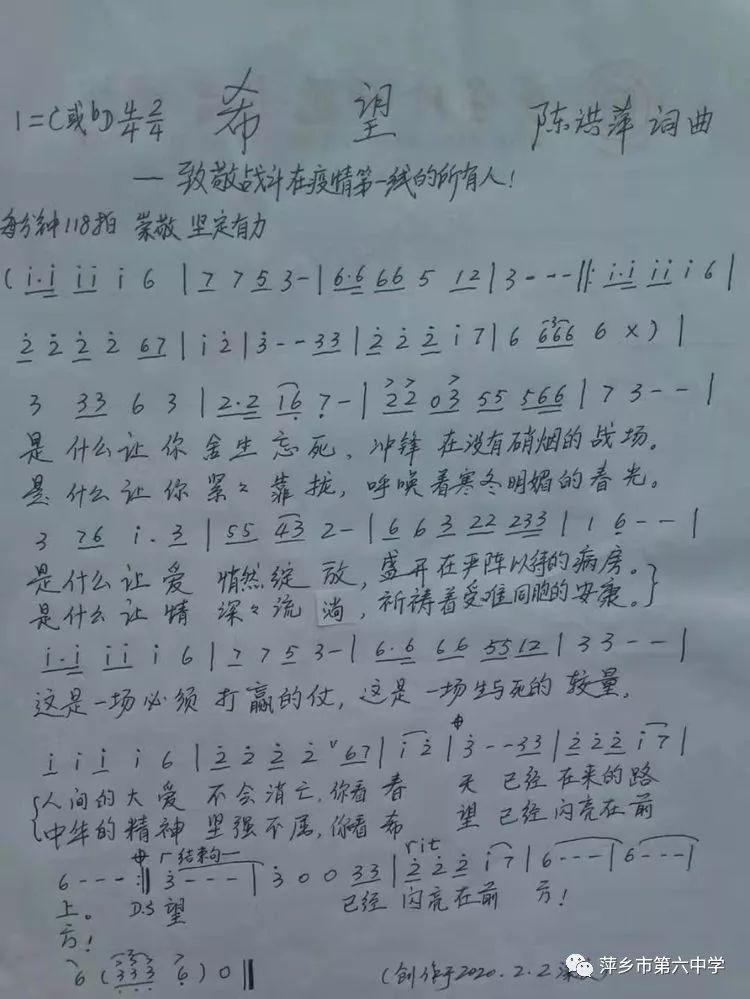 1=C或bD 4/4 2/4 希 望 陈洪萍 词曲
— 致敬战斗在疫情第一线的所有人！
每分钟118拍 崇敬 坚定有力
(i·i ii i 6 | 7 7 5 3- | 6·6 66 5 12 | 3--- ‖: i·i ii i 6 |
2 2 2 2 67 | i 2 | 3--33 | 2 2 2 i 7 | 6 666 6 x) |
3 33 6 3 | 2·2 16 7- | 22 03 55 566 | 7 3-- |
是什么让你 舍生忘死，冲锋在没有硝烟的战场。
是什么让你 紧々靠拢，呼唤着寒冬明媚的春光。
3 76 i·3 | 55 43 2- | 6 6 3 22 233 | 1 6-- |
是什么让爱 悄然绽放，盛开在严阵以待的病房。
是什么让情 深々流淌，祈祷着受难同胞的安康。}
i·i ii i 6 | 7 7 5 3- | 6·6 66 5512 | 3 3-- |
这是一场必须打赢的仗，这是一场生与死的较量。
i i i i 6 | 2 2 2 2 ∨ 67 | i 2 | 3--33 | 2 2 2 i 7 |
{人间的大爱 不会消亡，你看春 天 已经在来的路
{中华的精神 坚强不屈，你看希 望 已经闪亮在前
6---:‖ 结束句 3--- | 3 0 0 33 | rit 2 2 2 i 7 | 6--- | 6--- |
上。 D.S 望 已经 闪亮在前 方！
方！
6 (333 6) 0 ‖ (创作于2020.2.2
萍乡市第六中学